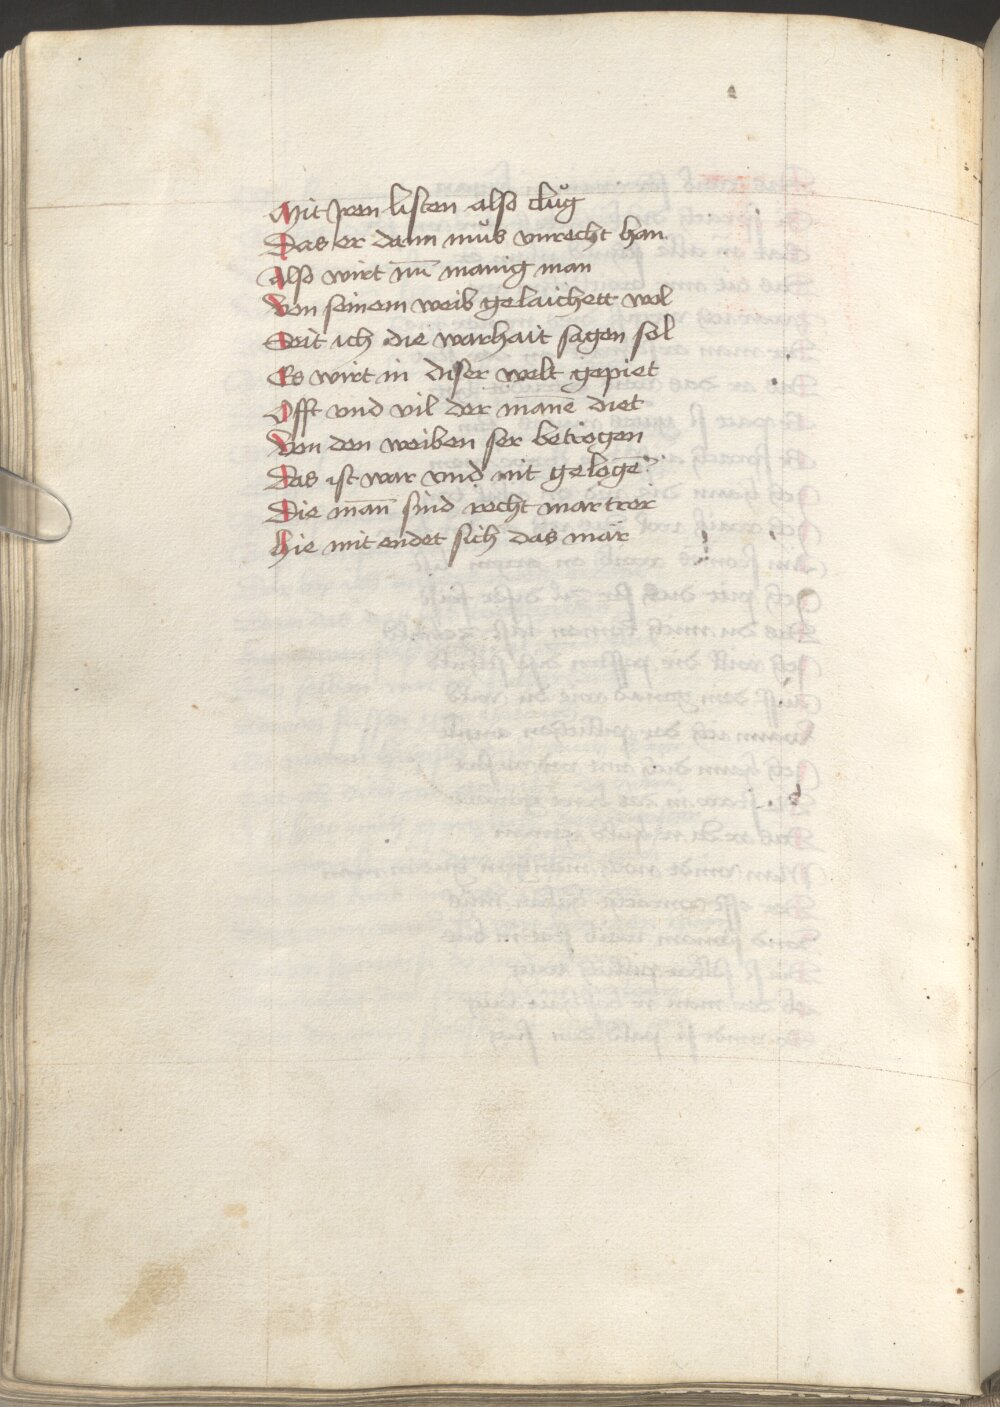 Mit Jren listen also clůg
Das er dann můs vnrecht han
Also wirt nu̅ manig man
Von seinem weib gelaichett wol
Seit ich die warhait sagen sol
Es wirt in diser welt gepiet
Offt vnd vil der ma̅ne̅ diet
Von den weiben ser betrogen
Das ist war vnd nit geloge̅
Die man̅ sind recht martrer
Hie mit endet sich das mär